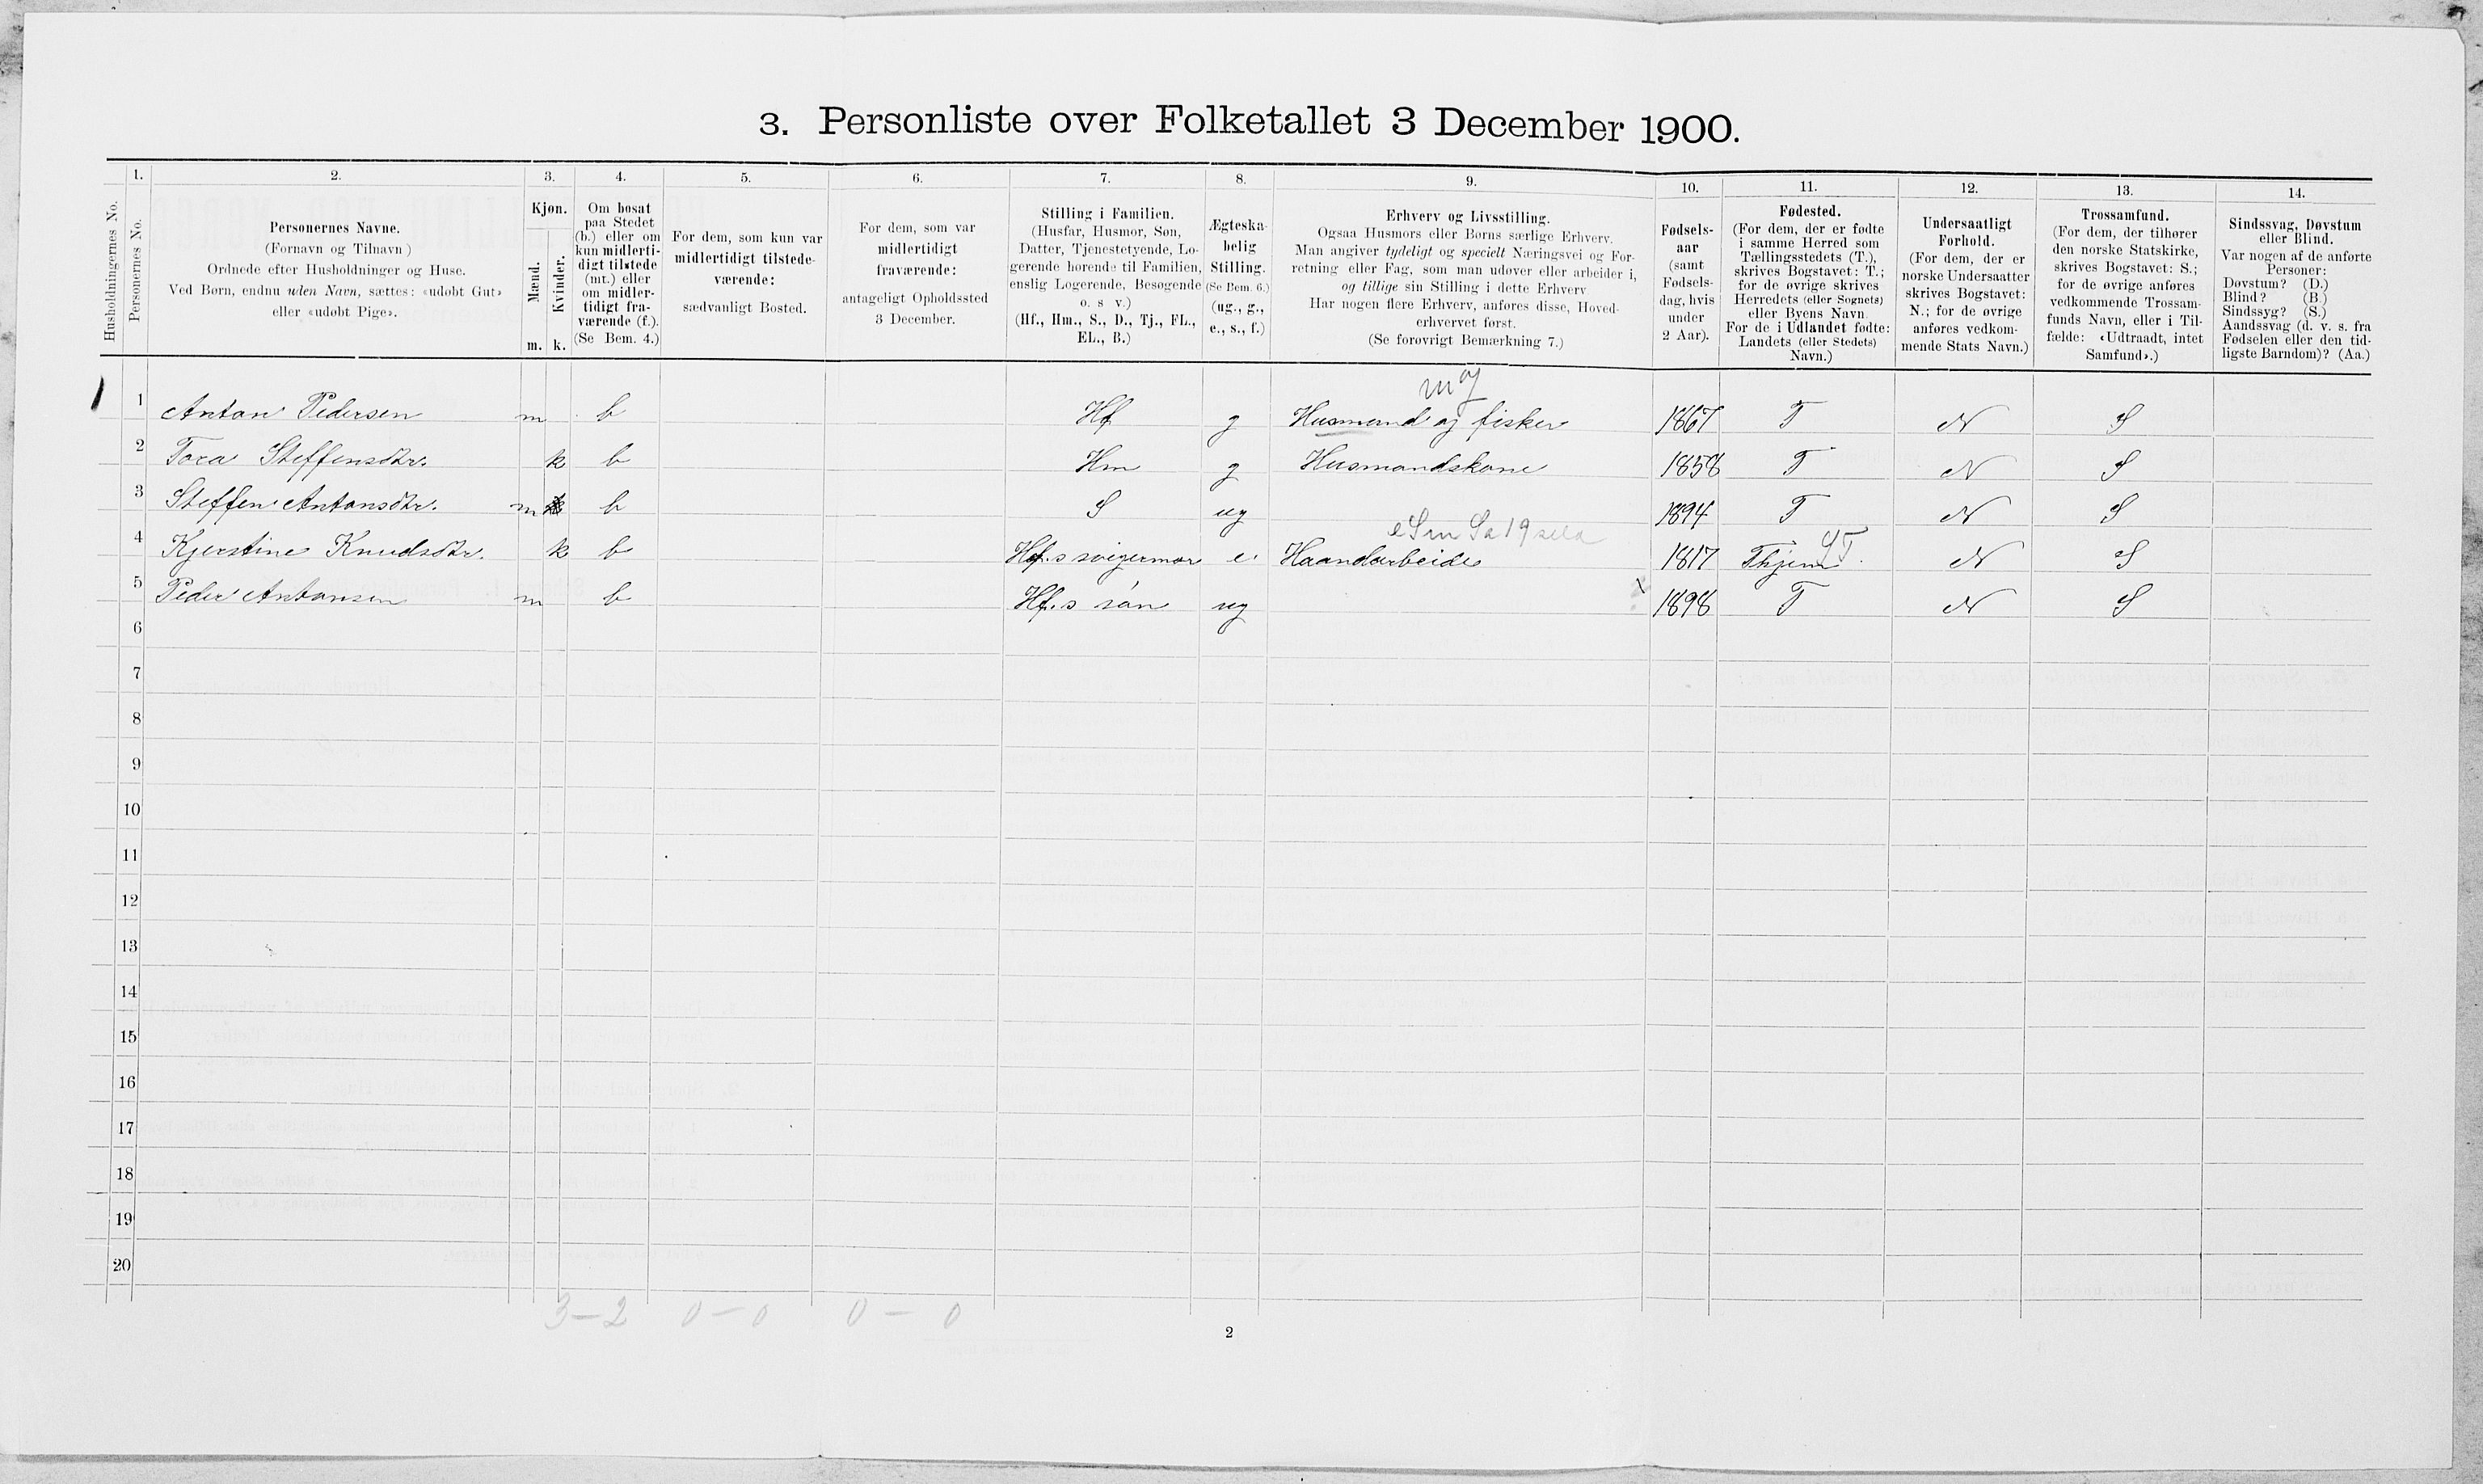 3. Personliste over Folketallet 3 December 1900.
1. 2. 3. 4. 5. 6. 7. 8. 9. 10. 11. 12. 13. 14.
Husholdningernes No.
Personernes No.
Personernes Navne.
(Fornavn og Tilnavn)
Ordnede efter Husholdninger og Huse.
Ved Børn, endnu uden Navn, sættes: «udøbt Gut»
eller «udøbt Pige».
Kjøn.
Mænd.
Kvinder.
m. k.
Om bosat
paa Stedet
(b.) eller om
kun midlerti-
digt tilstede
(mt.) eller
om midler-
tidigt fra-
værende (f.).
(Se Bem. 4.)
For dem, som kun var
midlertidigt tilstede-
værende:
sædvanligt Bosted.
For dem, som var
midlertidigt
fraværende:
antageligt Opholdssted
3 December.
Stilling i Familien.
(Husfar, Husmor, Søn,
Datter, Tjenestetyende, Lo-
gerende hørende til Familien,
enslig Logerende, Besøgende
o. s v.)
(Hf., Hm., S., D., Tj., FL.,
EL., B.)
Ægteska-
belig
Stilling.
(Se Bem. 6.)
(ug., g.,
e., s., f.)
Erhverv og Livsstilling.
Ogsaa Husmors eller Børns særlige Erhverv.
Man angiver tydeligt og specielt Næringsvei og For-
retning eller Fag, som man udøver eller arbeider i,
og tillige sin Stilling i dette Erhverv
Har nogen flere Erhverv, anføres disse, Hoved-
erhvervet først.
(Se forøvrigt Bemærkning 7.)
Fødsels-
aar
(samt
Fødsels-
dag, hvis
under
2 Aar).
Fødested.
(For dem, der er fødte
i samme Herred som
Tællingsstedets (T.),
skrives Bogstavet: T.;
for de øvrige skrives
Herredets (eller Sognets)
eller Byens Navn
For de i Udlandet fødte:
Landets (eller Stedets)
Navn.)
Undersaatligt
Forhold.
(For dem, der er
norske Undersaatter
skrives Bogstavet:
N.; for de øvrige
anføres vedkom-
mende Stats Navn.)
Trossamfund.
(For dem, der tilhører
den norske Statskirke,
skrives Bogstavet: S.;
for de øvrige anføres
vedkommende Trossam-
funds Navn, eller i Til-
fælde: «Udtraadt, intet
Samfund».)
Sindssvag, Døvstum
eller Blind.
Var nogen af de anførte
Personer:
Døvstum? (D.)
Blind? (B.)
Sindssyg? (S.)
Aandssvag (d. v. s. fra
Fødselen eller den tid-
ligste Barndom)? (Aa.)
1 Anton Pedersen m b Hf g Husmand og fisker 1867 T N S
2 Tora Steffensdtr. k b Hm g Husmandskone 1858 T N S
3 Steffen Antonsdtr. m b S ug 1894 T N S
4 Kjerstine Knudsdtr. k b Hf.s svigermor e Haandarbeide 1817 N S
5 Peder Antonsen m b Hf.s søn ug 1898 T N S
6
7
8
9
10
11
12
13
14
15
16
17
18
19
20
3 – 2 0 – 0 0 – 0
2